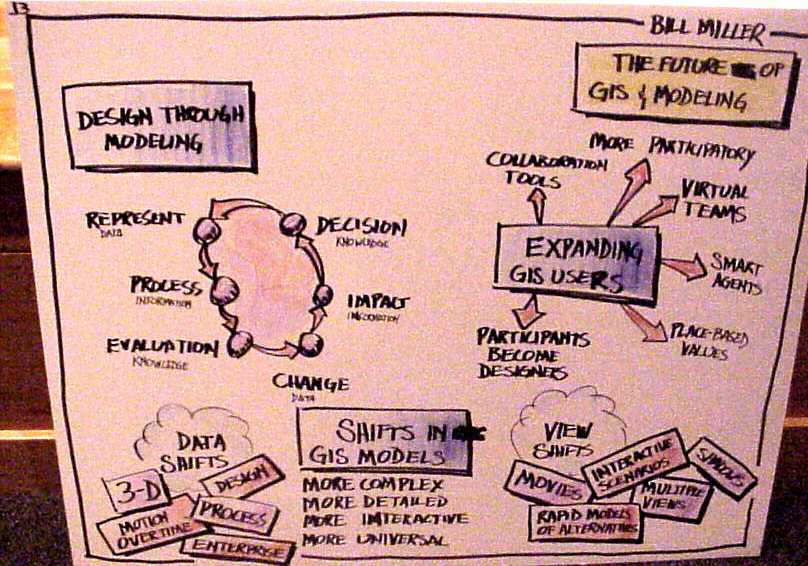 13
BILL MILLER
THE FUTURE OF
GIS & MODELING
DESIGN THROUGH
MODELING
REPRESENT
DATA
PROCESS
INFORMATION
EVALUATION
KNOWLEDGE
CHANGE
DATA
IMPACT
INFORMATION
DECISION
KNOWLEDGE
COLLABORATION
TOOLS
MORE PARTICIPATORY
VIRTUAL
TEAMS
EXPANDING
GIS USERS
SMART
AGENTS
PLACE-BASED
VALUES
PARTICIPANTS
BECOME
DESIGNERS
DATA
SHIFTS
3-D
DESIGN
PROCESS
MOTION
OVERTIME
ENTERPRISE
SHIFTS IN
GIS MODELS
MORE COMPLEX
MORE DETAILED
MORE INTERACTIVE
MORE UNIVERSAL
VIEW
SHIFTS
MOVIES
INTERACTIVE
SCENARIOS
MULTIPLE
VIEWS
RAPID MODELS
OF ALTERNATIVES